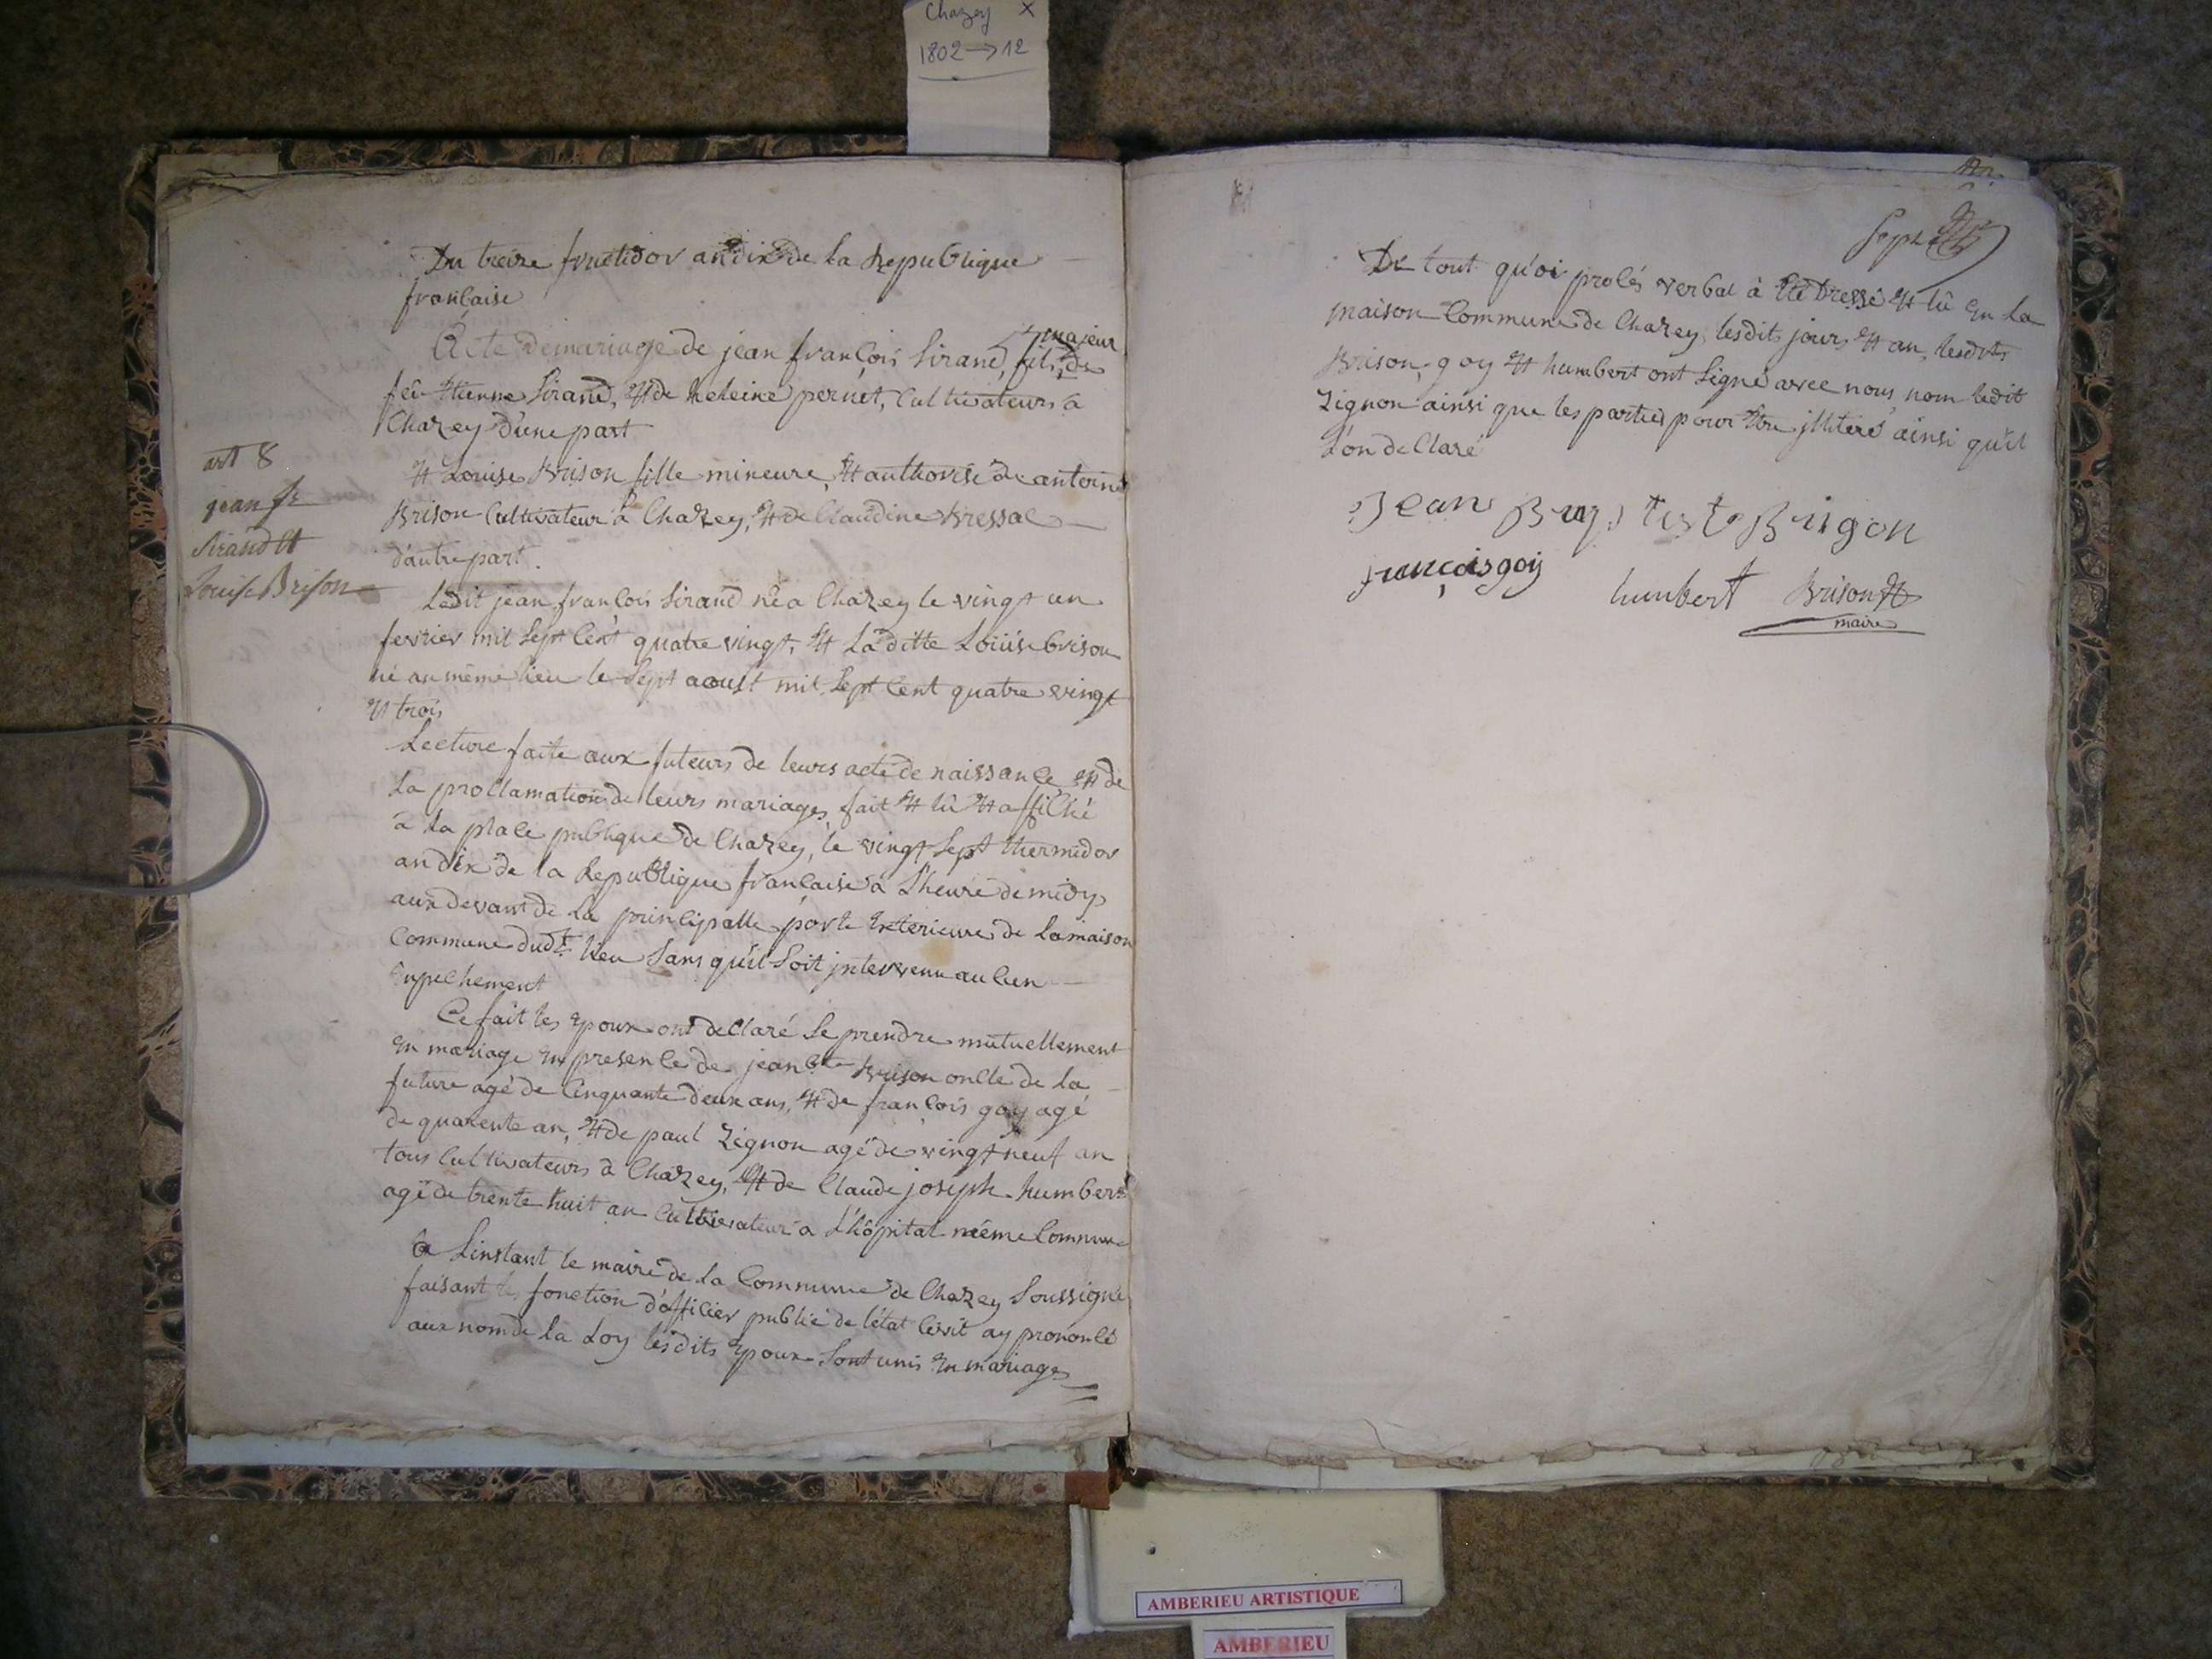 Chazey X
1802 → 12
Du treize fructidor an dix de la Republique
française
Acte de mariage de jean françois Sirand, fils majeur de
feû Etienne Sirand, et de heleine pernet, Cultivateurs a
Chazey d'une part
art 8
jean fs
Sirand et
Louise Brison
et Louise Brison fille mineure, et authorisé de antoine
Brison Cultivateur a Chazey, et de Claudine Bressac
d'autre part.
Ledit jean françois Sirand né a Chazey le vingt un
fevrier mil sept cent quatre vingt, et La ditte Loüise brison
né au même lieu le sept aoust mil sept cent quatre vingt
et trois
Lecture faite aux futeurs de leurs acte de naissance et de
la proclamation de leurs mariages, fait et lû et affiché
à la place publique de Chazey, le vingt sept thermidor
an dix de la Republique française à L'heure de midy
aux devant de La principalle porte exterieure de la maison
Commune dudt. lieu Sans qu'il Soit intervenu aucun
Enpechement
Ce fait les Epoux ont declaré Se prendre mutuellement
en mariage en presence de jean bte Brison oncle de la
future agé de Cinquante deux ans, et de françois goy agé
de quarente an, et de paul Zignon agé de vingt neuf an
tous Cultivateurs à Chazey, et de Claude joseph humbert
agé de trente huit an Cultivateur a L'hôpital même Commune
a Linstant le maire de la Commune de Chazey Soussigné
faisant les fonction d'officier public de l'état Civil ay prononcé
aux nom de la Loy lesdits Epoux Sont unis en mariages
Sept
De tout qu'oi procés verbal à eté dressé et lû en la
maison Commune de Chazey, lesdits jours et an, lesdits
Brison, goy et humbert ont Signé avec nous, nom ledit
Zignon ainsi que les parties pour être illiteré ainsi qu'il
L'on declaré
Jean Baptiste Brison
françois goy
humbert
Brison
maire
AMBERIEU ARTISTIQUE
AMBERIEU